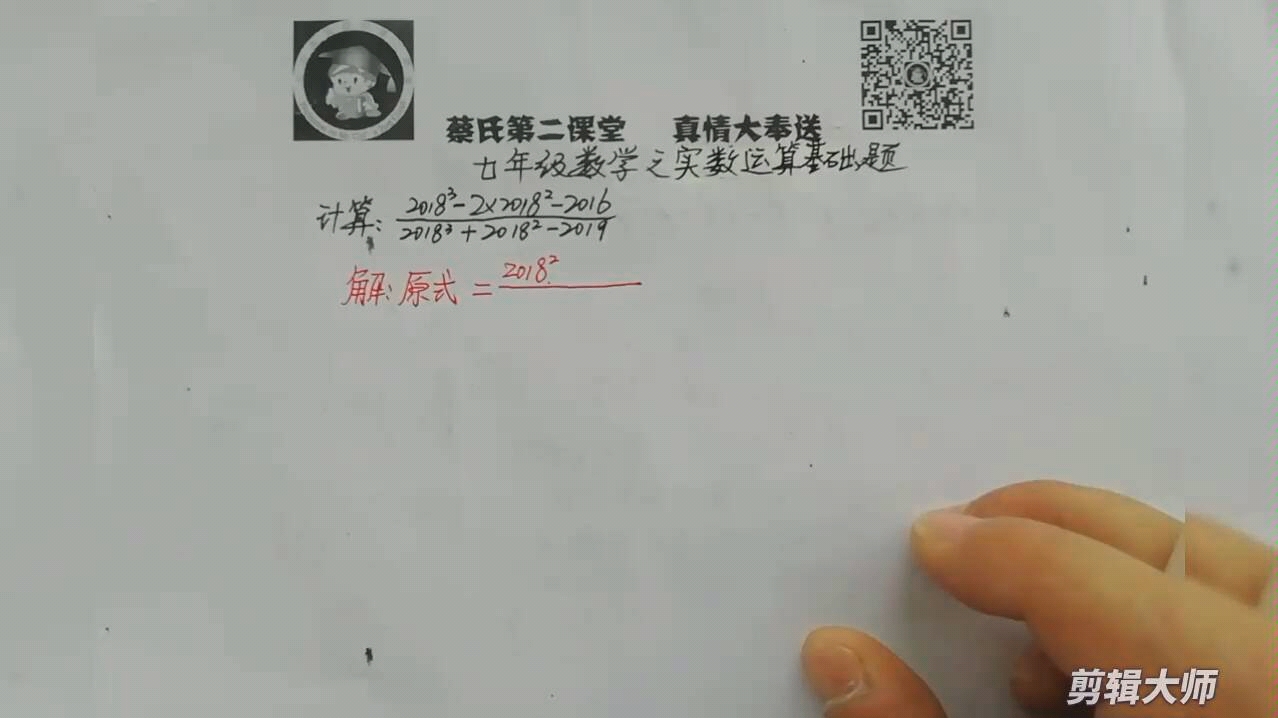 蔡氏第二课堂 真情大奉送
七年级数学之实数运算基础题
计算: 2018³-2×2018²-2016
2018³+2018²-2019
解: 原式 = 2018²
剪辑大师